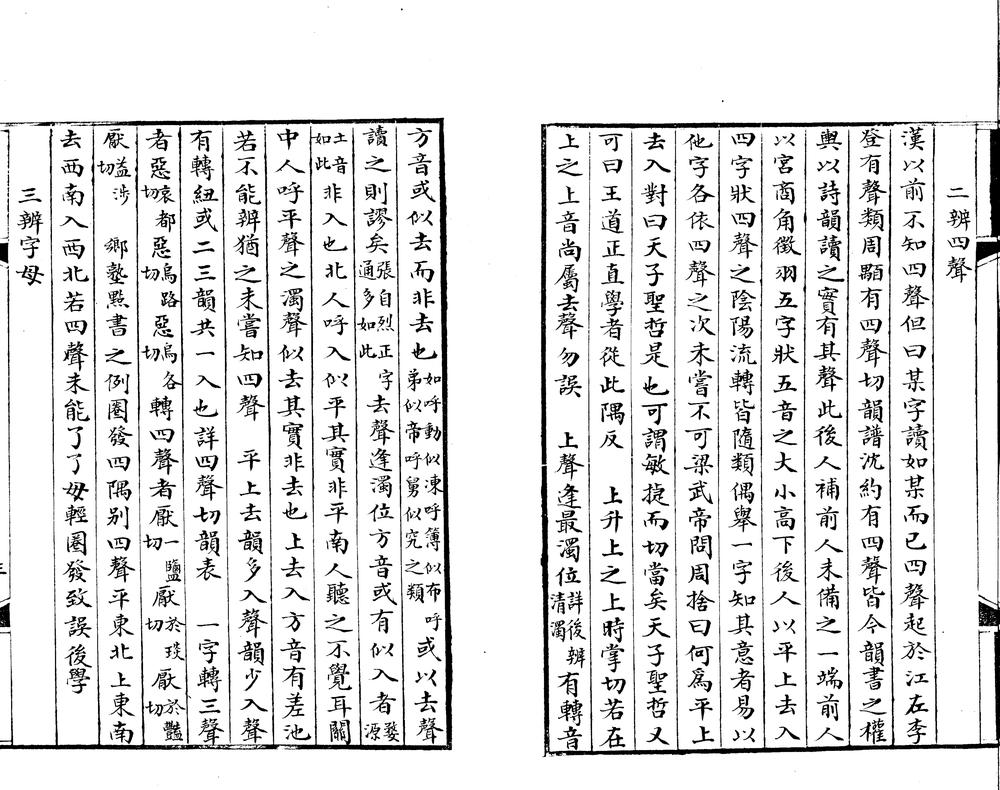 二辨四聲
漢以前不知四聲但曰某字讀如某而已四聲起於江左李
登有聲類周顒有四聲切韻譜沈約有四聲皆今韻書之權
輿以詩韻讀之實有其聲此後人補前人未備之一端前人
以宮商角徵羽五字狀五音之大小高下後人以平上去入
四字狀四聲之陰陽流轉皆隨類偶舉一字知其意者易以
他字各依四聲之次未嘗不可梁武帝問周捨曰何爲平上
去入對曰天子聖哲是也可謂敏捷而切當矣天子聖哲又
可曰王道正直學者從此隅反　上升上之上時掌切若在
上之上音尚屬去聲勿誤　上聲逢最濁位詳後辨清濁有轉音
方音或似去而非去也如呼動似凍呼簿似布呼弟似帝呼舅似究之類或以去聲
讀之則謬矣張自烈正字通多如此去聲逢濁位方音或有似入者婺源土音如此
非入也北人呼入似平其實非平南人聽之不覺耳關
中人呼平聲之濁聲似去其實非去也上去入方音有差池
若不能辨猶之未嘗知四聲　平上去韻多入聲韻少入聲
有轉紐或二三韻共一入也詳四聲切韻表　一字轉三聲
者惡哀都切惡烏路切惡烏各切轉四聲者厭一鹽切厭於琰切厭於豔切
厭益涉切　鄉塾點書之例圈發四隅别四聲平東北上東南
去西南入西北若四聲未能了了毋輕圈發致誤後學
三辨字母